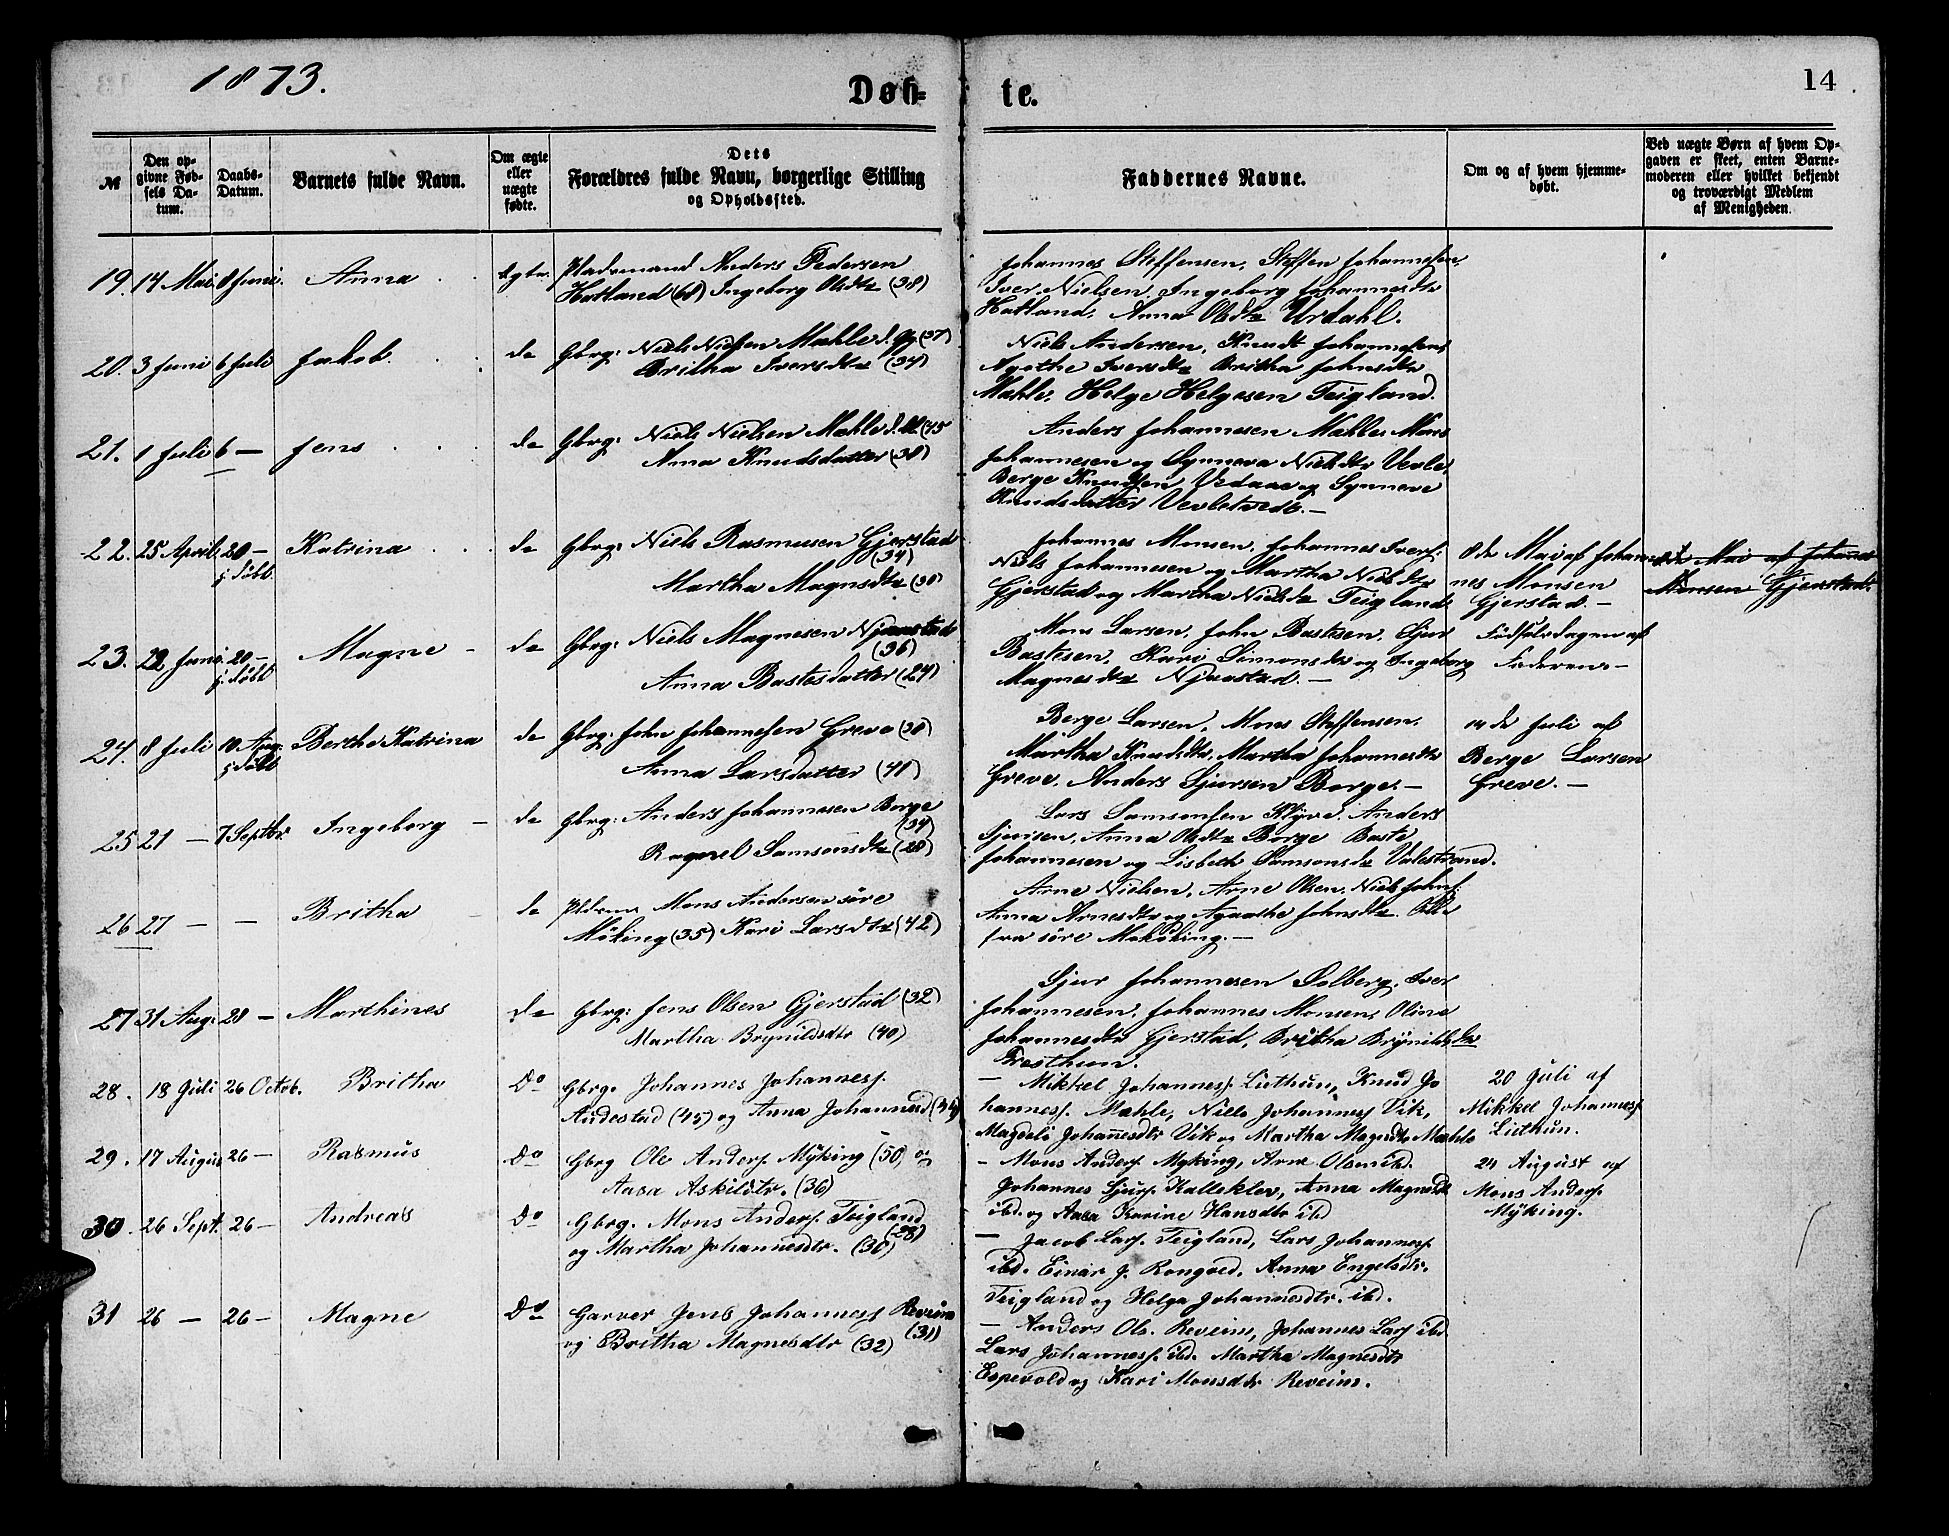 1873.
Døb-
te.
14
№
Den op-
givne Fød-
sels Da-
tum.
Daabs-
Datum.
Barnets fulde Navn.
Om ægte
eller
uægte
fødte.
Dets
Forældres fulde Navn, borgerlige Stilling
og Opholdssted.
Faddernes Navne.
Om og af hvem hjemme-
døbt.
Ved uægte Børn af hvem Op-
gaven er skeet, enten Barne-
moderen eller hvilket bekjendt
og troværdigt Medlem
af Menigheden.
19. 14 Mai 8 Juni. Anna Ægte. Pladsmand Anders Pedersen
Hatland Ingeborg Olsdtr (38)
Johannes Steffensen, Steffen Johannesen,
Iver Nielsen, Ingeborg Johannesdtr
Hatland, Anna Olsdtr Urdahl.
20. 3 Juni 6 Juli Jakob. do Gbrg: Niels Nielsen Mæhle d. y. (37)
Britha Iversdtr (34)
Niels Andersen, Knudt Johannesen,
Agethe Iversdtr Britha Johnsdtr
Mæhle, Helge Helgesen Teigland.
21. 1 Juli 6 — Jens do Gbrg: Niels Nielsen Mæhle d. Æ. (45
Anna Knudsdatter (38)
Anders Johannesen Mæhle, Mons
Johannesen og Synneva Nielsdtr Vevle,
Berge Knudsen Vedaae og Synneve
Knudsdatter Vevletvedt. —
22. 25 April 20 — Katrina do Gbrg: Niels Rasmusen Gjerstad
j. Døbt (34)
Martha Magnsdtr (30)
Johannes Monsen, Johannes Ivers:
Niels Johannesen og Martha Nielsdtr
Gjerstad og Martha Nielsdtr Teigland
8de Mai af Johan-
nes Monsen
Gjerstad. —
8de Mai af Johannes
Monsen Gjerstad.
23. 22 Juni 20 — Magne — do Gbrg: Niels Magnesen Njaastad
j. Døbt (36)
Anna Bastesdatter (24)
Mons Larsen, John Bastesen, Sjur
Bastesen, Kari Simonsdtr og Ingeborg
Magnesdtr Njaastad. —
Fødselsdagen af
Faderen. —
24. 8 Juli 10 Aug: Berthe Katrina do Gbrg: John Johannesen Greve (30)
j. Døbt
Anna Larsdatter (41)
Berge Larsen, Mons Steffensen,
Martha Knudsdtr, Martha Johannesdtr
Greve, Anders Sjursen Borge. —
14 de Juli af
Berge Larsen
Greve. —
25 21 — 7 Septbr Ingeborg — do Gbrg: Anders Johannesen Borge
(34)
Ragnel Samsonsdtr (28)
Lars Samsonsen Kleive, Anders
Sjursen, Anna Olsdtr Borge Baste
Johannesen og Lisbeth Samsonsdtr Valestrand.
26 27 — — Britha — do Pladsm. Mons Andersen søre
Møking (35) Kari Larsdtr (42)
Arne Nielsen, Arne Olsen, Niels Johns:
Anna Arnesdtr og Agaathe Johnsdtr. Alle
fra søre Møking. —
27 31 Aug: 28 — Marthines do Gbrg: Jens Olsen Gjerstad (32
Martha Brynildsdtr (40)
Sjur Johannesen Solberg, Iver
Johannesen, Johannes Monsen, Oline
Johannesdtr Gjerstad, Britha Brynildsdtr
Tresthun.
28. 18 Juli 26 Octob. Britha Do Gbrg. Johannes Johannesf.
Andestad (45) og Anna Johannesd
— Mikkel Johannesf. Liethun, Knud Jo
hannesf. Mæhle, Niels Johannesf Vik,
Magdeli Johannesdtr Vik og Martha Magnsdtr Mæhle
20 Juli af
Mikkel Johannesf
Liethun.
29. 17 August 26 — Rasmus Do Gbrg Ole Andersf. Mÿking (50) og
Aasa Askildtr. (36)
— Mons Andersf. Mÿking, Arne Olsen ibd.
Johannes Sjursf. Kalleklev, Anna Magnesdtr
ibd. og Aasa Karine Hansdtr ibd
24 August af
Mons Andersf.
Mÿking.
30. 26 Sept. 26 — Andreas Do Gbrg. Mons Andersf. Teigland
(28)
og Martha Johannesdtr. (30)
— Jacob Larsf. Teigland, Lars Johannesf
ibd. Einar J. Rongved, Anna Engelsdtr.
Teigland og Helga Johannesdtr. ibd.
31 26 — 26 — Magne Do Garver Jens Johannesf Reveim
(31)
og Britha Magnesdtr (32)
— Anders Ols. Reveim, Johannes Larsf ibd
Lars Johannesf. ibd. Martha Magnesdtr
Espevold og Kari Monsdtr Reveim.